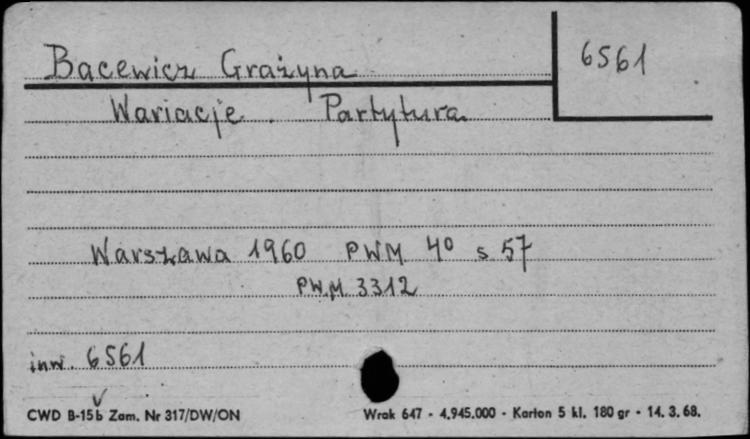 Bacewicz Grażyna
6561
Wariacje. Partytura
Warszawa 1960 PWM 4° s 57
PWM 3312
inw. 6561
CWD B-15b Zam. Nr 317/DW/ON
Wrak 647 - 4.945.000 - Karton 5 kl. 180 gr - 14. 3. 68.